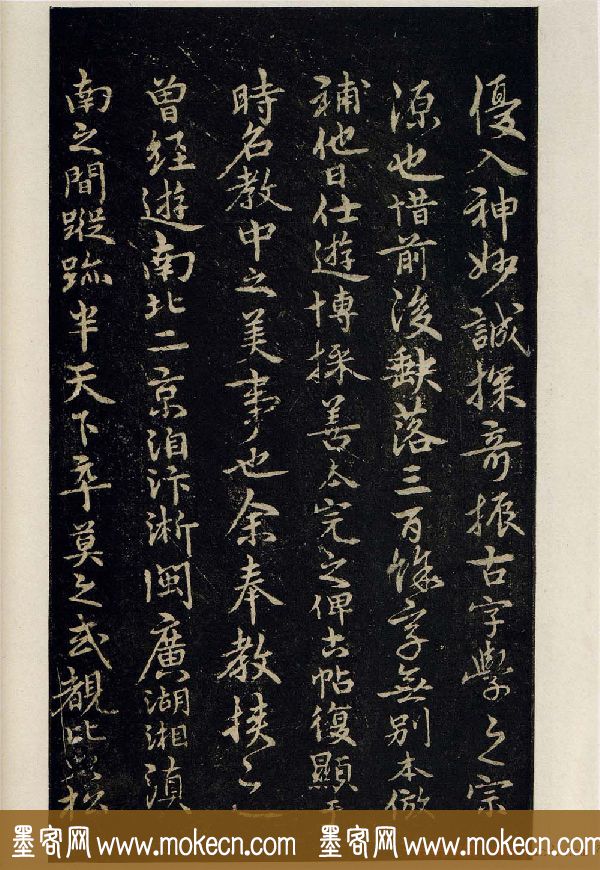 優入神妙誠探奇振古字學之宗
源也惜前後缺落三百餘字無別本倣
補他日仕遊博採善本完之俾古帖復顯
時名教中之美事也余奉教挾之
曾經遊南北二京洎汴淅閩廣湖湘滇
南之間蹤跡半天下卒莫之或比松
墨客网 www.mokecn.com 墨客网 www.mokecn.com